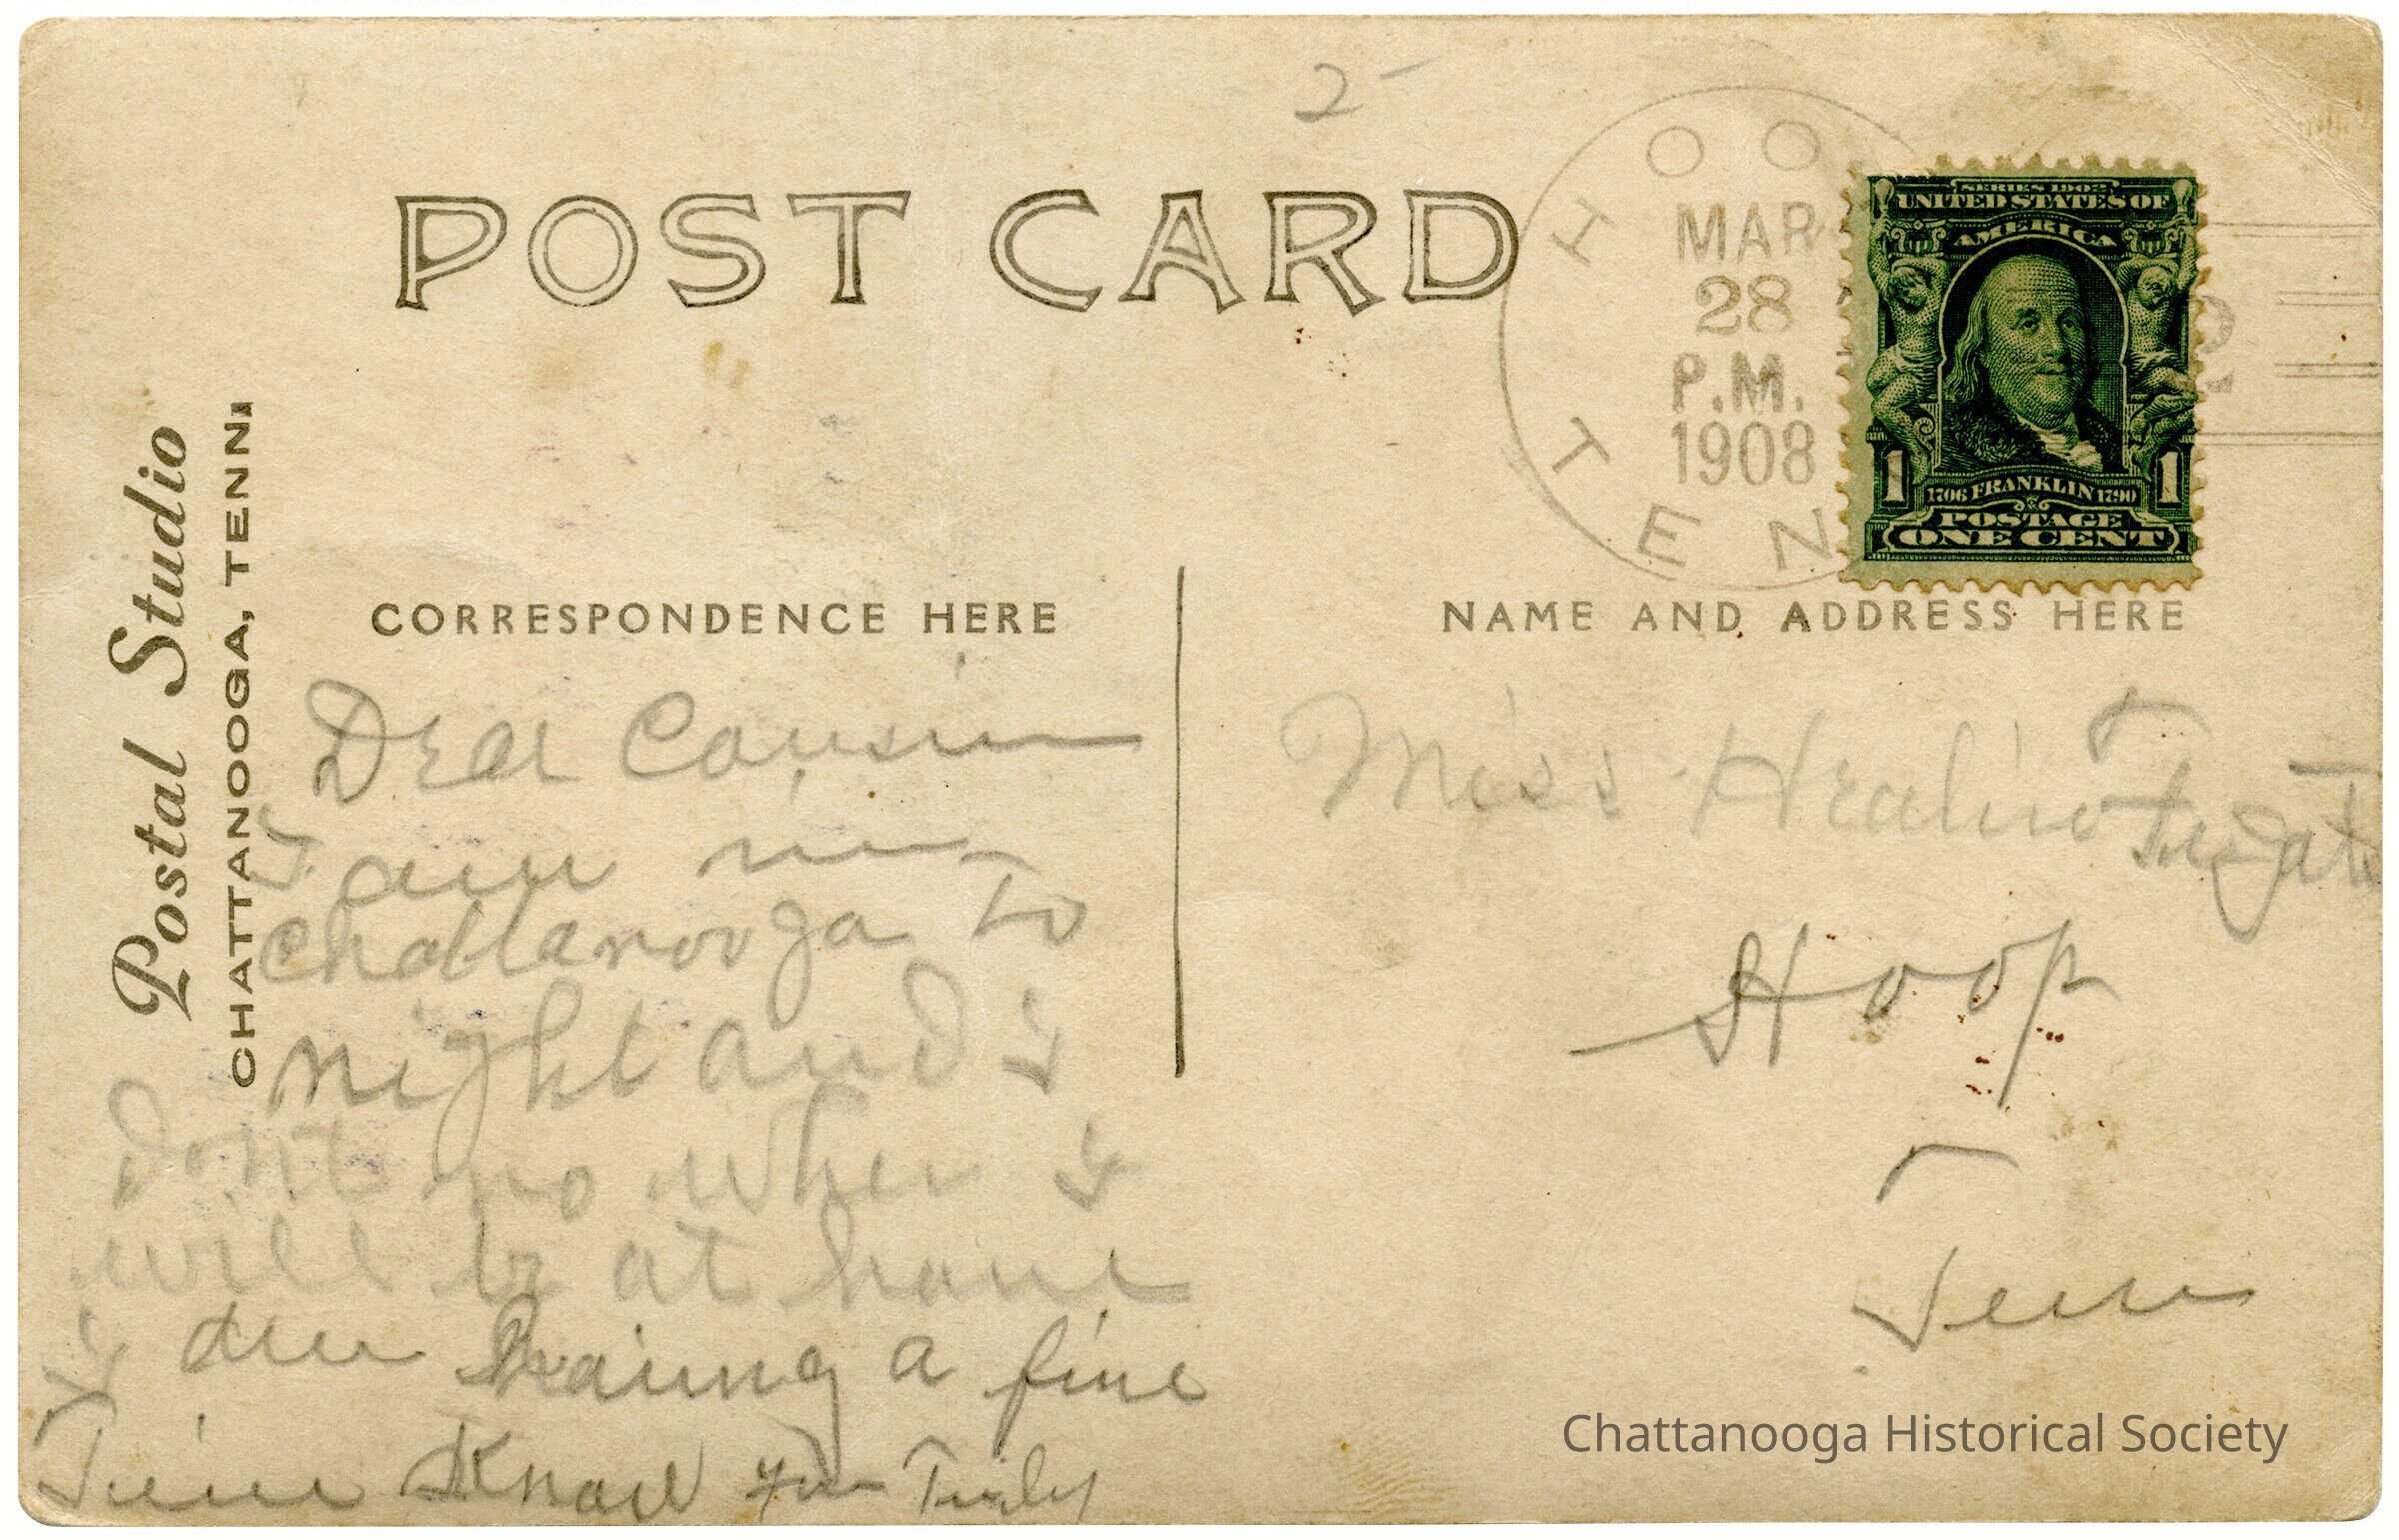 2-
POST CARD
HOO
MAR
28
P.M.
1908
TEN
SERIES 1902
UNITED STATES OF
AMERICA
1 1706 FRANKLIN 1790 1
POSTAGE
ONE CENT
2
Postal Studio
CHATTANOOGA, TENN.
CORRESPONDENCE HERE
Dear Cousin
I am in
Chattanooga To
night and I
dont no when I
will be at home
I am haaing a fine
Time Yours Truly
NAME AND ADDRESS HERE
Miss
Hoop
Tenn
Chattanooga Historical Society